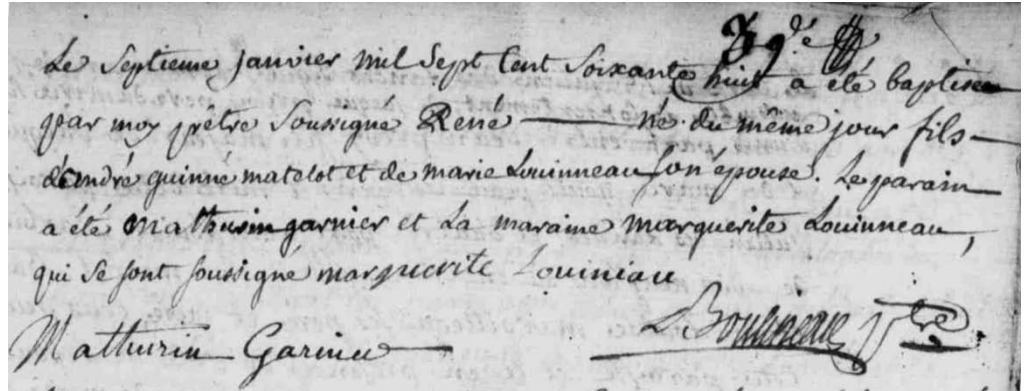 39.e
Le Septieme janvier mil Sept Cent Soixante huit a été baptisee
par moy prêtre Soussigné René né du même jour fils
d'andré guinné matelot et de marie Louinneau son épouse. Le parain
a été Mathurin garnier et La maraine marguerite Louinneau,
qui se sont soussigné marguerite Louiniau
Mathurin Garnier ptre